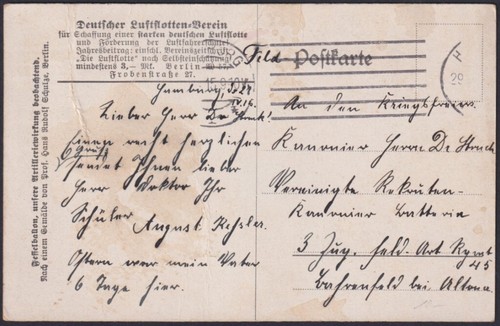 Deutscher Luftflotten-Verein
für Schaffung einer starken deutschen Luftflotte
und Förderung der Luftfahrerschaft
Jahresbeitrag: einschl. Vereinszeitschrift
„Die Luftflotte" nach Selbsteinschätzung
mindestens 3,— Mk. Berlin
Frobenstraße 27.
Feld-Postkarte
Hamburg
Lieber Herr Dr
Einen recht herzlichen
Gruß
sendet Ihnen lieber
Herr Doktor Ihr
Schüler
August Kessler
Ostern war mein Vater
6 Tage hier.
An den Kriegsfreiw.
Kanonier Herrn Dr
Vereinigte Rekruten-
Kanonier Batterie
3 Zug, Feld-Art Rgmt
45
Bahrenfeld bei Altona
Fesselballon, unsere Artilleriewirkung beobachtend.
Nach einem Gemälde von Prof. Hans Rudolf Schulze, Berlin.